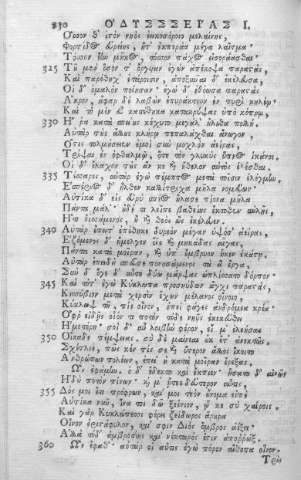 230 ὈΔΥΣΣΕΙΑΣ Ι.
Ὅσσον θ' ἱστὸν νηὸς ἐεικοσόροιο μελαίνης,
Φορτίδος εὐρείης, ἥτ' ἐκπεράᾳ μέγα λαῖτμα·
Τόσσον ἔην μῆκος, τόσσον πάχος εἰσοράασθαι.
325 Τοῦ μὲν ὅσον τ' ὄργυιαν ἐγὼν ἀπέκοψα παραστὰς,
Καὶ παρέθηχ' ἑτάροισιν, ἀποξῦναι δ' ἐκέλευσα.
Οἱ δ' ὁμαλὸν ποίησαν· ἐγὼ δ' ἐθόωσα παραστὰς
Ἄκρον, ἄφαρ δὲ λαβὼν ἐπυράκτεον ἐν πυρὶ κηλέῳ·
Καὶ τὸ μὲν εὖ κατέθηκα κατακρύψας ὑπὸ κόπρῳ,
330 Ἥ ῥα κατὰ σπείους κέχυτο μεγάλ' ἤλιθα πολλή.
Αὐτὰρ τοὺς ἄλλους κλήρῳ πεπαλάχθαι ἄνωγον,
Ὅστις τολμήσειεν ἐμοὶ σὺν μοχλὸν ἀείρας
Τρῖψαι ἐν ὀφθαλμῷ, ὅτε τὸν γλυκὺς ὕπνος ἱκάνοι.
Οἱ δ' ἔλαχον τοὺς ἄν κε καὶ ἤθελον αὐτὸς ἑλέσθαι.
335 Τέσσαρες, αὐτὰρ ἐγὼ πέμπτος μετὰ τοῖσιν ἐλέγμην.
Ἑσπέριος δ' ἦλθεν καλλίτριχα μῆλα νομεύων·
Αὐτίκα δ' εἰς εὐρὺ σπέος ἤλασε πίονα μῆλα
Πάντα μάλ' οὐδέ τι λεῖπε βαθείης ἔκτοθεν αὐλῆς,
Ἤ τι ὀϊσάμενος, ἢ καὶ θεὸς ὣς ἐκέλευσεν.
340 Αὐτὰρ ἔπειτ' ἐπέθηκε θυρεὸν μέγαν ὑψόσ' ἀείρας,
Ἑζόμενος δ' ἤμελγεν ὄϊς καὶ μηκάδας αἶγας,
Πάντα κατὰ μοῖραν, καὶ ὑπ' ἔμβρυον ἧκεν ἑκάστῃ.
Αὐτὰρ ἐπειδὴ σπεῦσε πονησάμενος τὰ ἃ ἔργα,
Σὺν δ' ὅγε δ' αὖτε δύω μάρψας ὡπλίσσατο δόρπον·
345 Καὶ τότ' ἐγὼ Κύκλωπα προσηύδων ἄγχι παραστὰς,
Κισσύβιον μετὰ χερσὶν ἔχων μέλανος οἴνοιο·
Κύκλωψ τῆ, πίε οἶνον, ἐπεὶ φάγες ἀνδρόμεα κρέα·
Ὄφρ' εἰδῇς οἷόν τι ποτὸν τόδε νηῦς ἐκεκεύθει
Ἡμετέρη· σοὶ δ' αὖ λοιβὴν φέρον, εἴ μ' ἐλεήσας
350 Οἴκαδε πέμψειας· σὺ δὲ μαίνεαι οὐκ ἔτ' ἀνεκτῶς.
Σχέτλιε, πῶς κέν τίς σε καὶ ὕστερον ἄλλος ἵκοιτο
Ἀνθρώπων πολέων, ἐπεὶ οὐ κατὰ μοῖραν ἔρεξας.
Ὣς ἐφάμην, ὁ δ' ἔδεκτο καὶ ἔκπιεν· ἥσατο δ' αἰνῶς
Ἡδὺ ποτὸν πίνων· καί μ' ᾔτεε δεύτερον αὖτις,
355 Δός μοι ἔτι πρόφρων, καί μοι τεὸν οὔνομα εἰπὲ
Αὐτίκα νῦν, ἵνα τοι δῶ ξείνιον, ᾧ κε σὺ χαίροις.
Καὶ γὰρ Κυκλώπεσσι φέρει ζείδωρος ἄρουρα
Οἶνον ἐριστάφυλον, καί σφιν Διὸς ὄμβρος ἀέξει·
Ἀλλὰ τόδ' ἀμβροσίης καὶ νέκταρός ἐστιν ἀπορρώξ.
360 Ὣς ἔφατ'· αὐτάρ οἱ αὖτις ἐγὼ πόρον αἴθοπα οἶνον·
Τρὶς